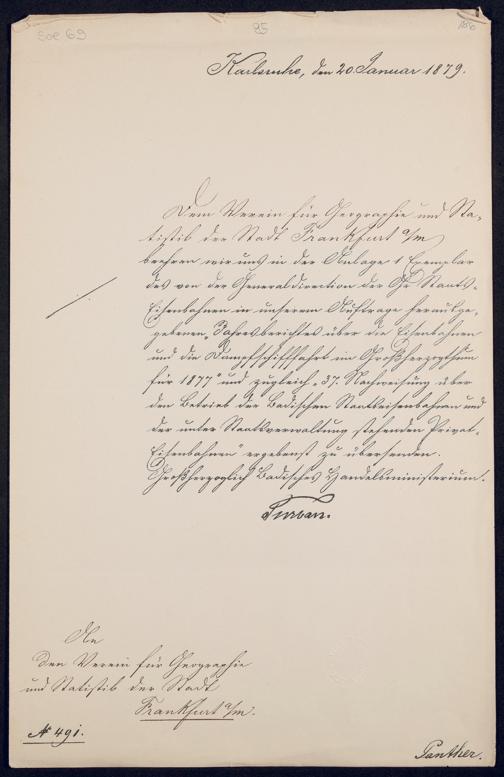 Soc 69
85
Karlsruhe, den 20. Januar 1879.
Dem Verein für Geographie und Sta-
tistik der Stadt Frankfurt a/m
beehren wir uns in der Anlage 1 Exemplar
des von der Generaldirection der Gr. Staats-
Eisenbahnen in unserem Auftrage herausge-
gebenen „Jahresberichtes über die Eisenbahnen
und die Dampfschifffahrt im Großherzogthum
für 1877" und zugleich „37. Nachweisung über
den Betrieb der Badischen Staatseisenbahnen und
der unter Staatsverwaltung stehenden Privat-
Eisenbahnen" ergebenst zu übersenden.
Großherzoglich Badisches Handelsministerium.
Turban.
An
den Verein für Geographie
und Statistik der Stadt
Frankfurt a/m.
№ 491.
Panther.